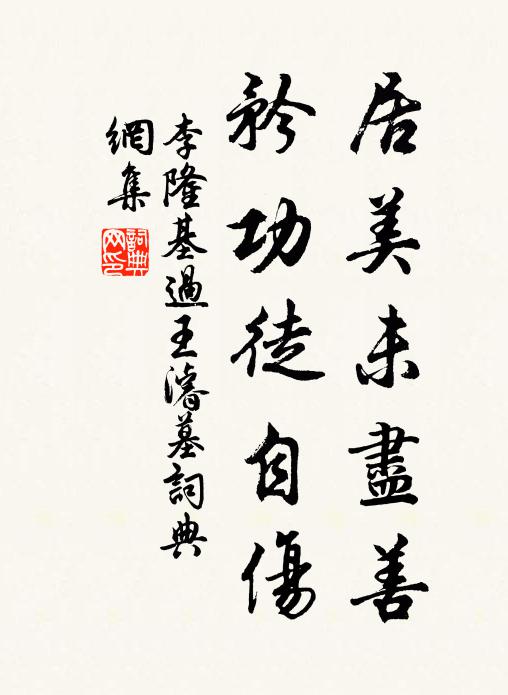 居美未盡善
矜功徒自傷
李隆基過王濬墓詞典
網集
詞典
网印